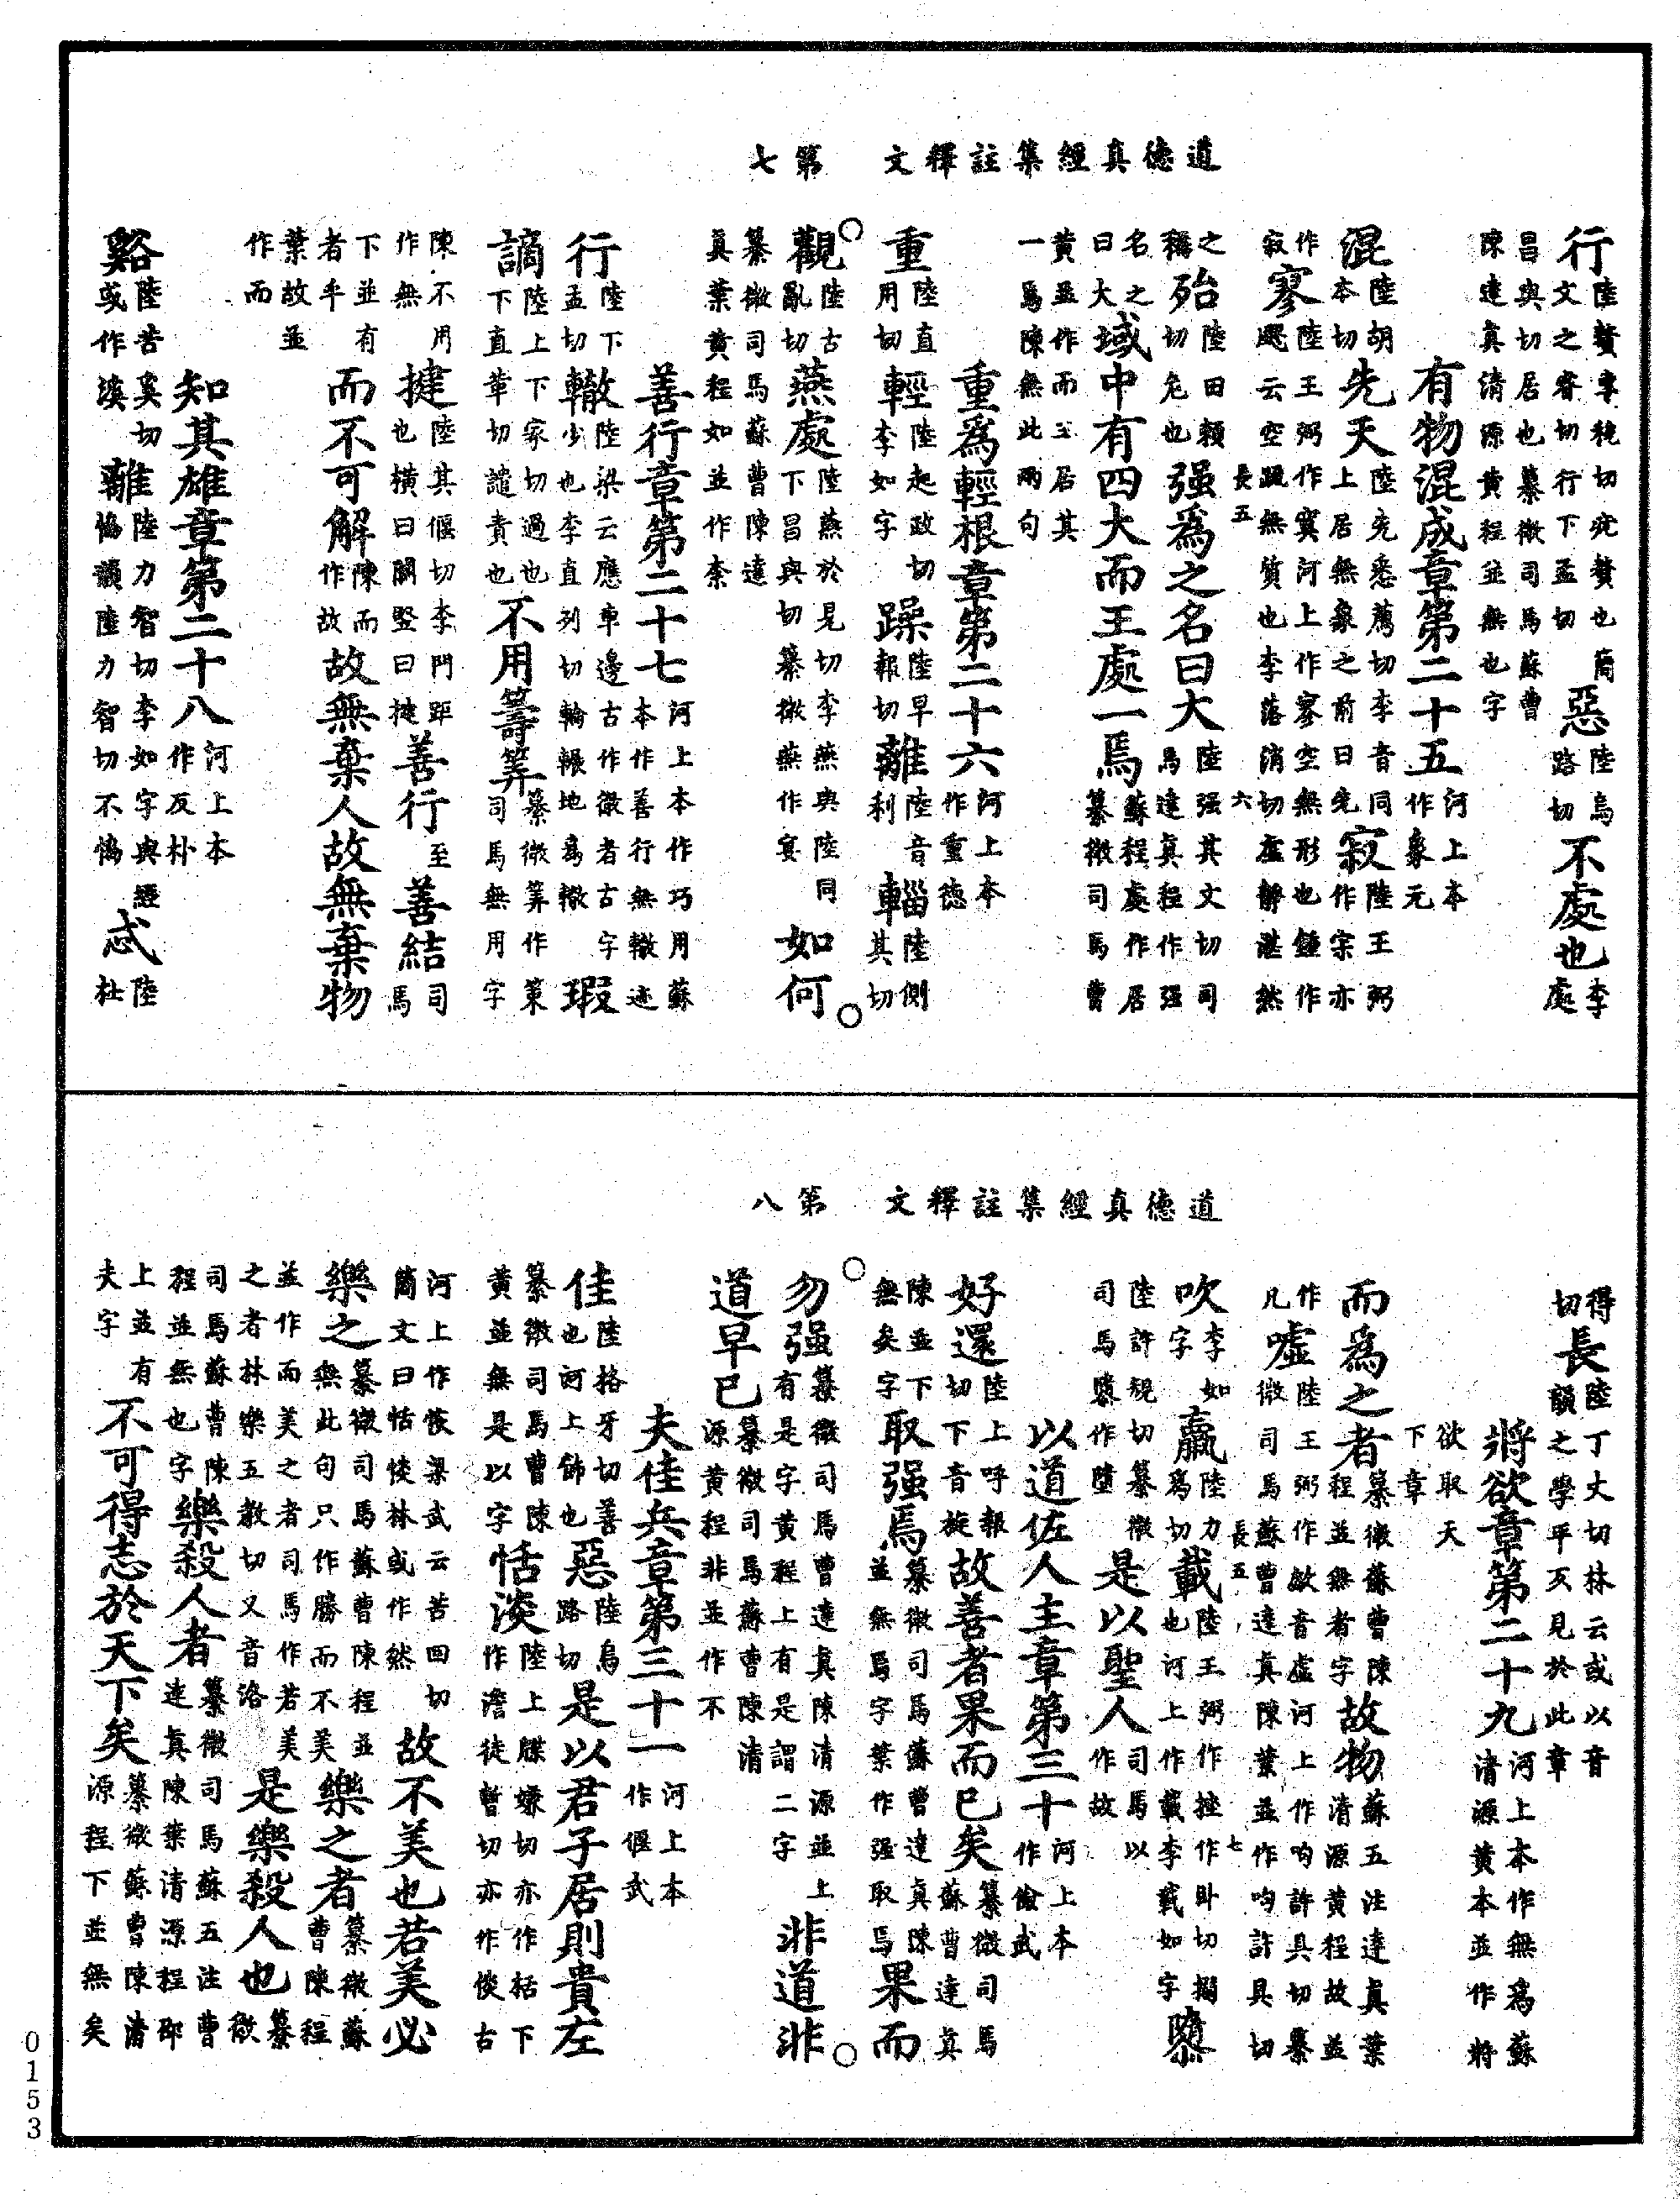 道德真經集註釋文　第七
行陸贅專稅切疣贅也簡文之睿切行下孟切惡陸烏路切不處也李處
昌與切居也纂微司馬蘇曹陳達真清源黃程並無也字
有物混成章第二十五河上本作象元
混陸胡本切先天陸先悉薦切李音同上居無象之前曰先寂陸王弼作宗亦
作寂寥陸王弼作寞河上作寥空無形也鍾作飂云空疏無質也李落消切虛靜湛然
之稱殆陸田賴切危也强為之名曰大陸强其丈切司馬達真程作强
名之曰大域中有四大而王處一焉蘇程處作居纂微司馬曹
黃並作而王居其一焉陳無此兩句
重為輕根章第二十六河上本作重德
重陸直用切輕陸起政切李如字躁陸早報切離陸音利輜陸側其切
觀陸古亂切燕處陸燕於見切李燕與陸同下昌與切纂微燕作宴如何
纂微司馬蘇曹陳達真葉黃程如並作柰
善行章第二十七河上本作巧用蘇本作善行無轍迹
行陸下孟切轍陸梁云應車邊古作徹者古字少也李直列切輪輾地為轍瑕
謫陸上下家切過也下直革切譴責也不用籌筭纂微筭作策司馬無用字
陳不用作無揵陸其偃切李門距也橫曰關豎曰揵善行至善結司馬
下並有者乎而不可解陳而作故故無棄人故無棄物
葉故並作而
知其雄章第二十八河上本作反朴
谿陸苦奚切或作溪離陸力智切李如字與經協韻陸力智切不協忒陸杜
道德真經集註釋文　第八
得切長陸丁丈切林云或以音韻之學平又見於此章
將欲章第二十九河上本作無為蘇清源黃本並作將
欲取天下章
而為之者纂微蘇曹陳程並無者字故物蘇五注達真葉清源黃程故並
作凡噓陸王弼作歔音虛河上作呴許具切纂微司馬蘇曹達真陳葉並作呴許具切
吹李如字羸陸力為切載陸王弼作挫作臥切搦也河上作載李載如字隳
陸許規切纂微司馬隳作墮是以聖人司馬以作故
以道佐人主章第三十河上本作儉武
好還陸上呼報切下音旋故善者果而已矣纂微司馬蘇曹達真
陳並下無矣字取强焉纂微司馬蘇曹達真陳並無焉字葉作强取焉果而
勿强纂微司馬曹達真陳清源並上有是字黃程上有是謂二字非道非
道早已纂微司馬蘇曹陳清源黃程非並作不
夫佳兵章第三十一河上本作偃武
佳陸格牙切善也河上飾也惡陸烏路切是以君子居則貴左
纂微司馬曹陳黃並無是以字恬淡陸上牒嫌切亦作栝下作澹徒暫切亦作惔古
河上作恢梁武云苦回切簡文曰恬惔林或作然故不美也若美必
樂之纂微司馬蘇曹陳程並無此句只作勝而不美樂之者纂微蘇曹陳程
並作而美之者司馬作若美之者林樂五教切又音洛是樂殺人也纂微
司馬蘇曹陳程並無也字樂殺人者纂微司馬蘇五注曹達真陳葉清源程邵
上並有夫字不可得志於天下矣纂微蘇曹陳清源程下並無矣
0153